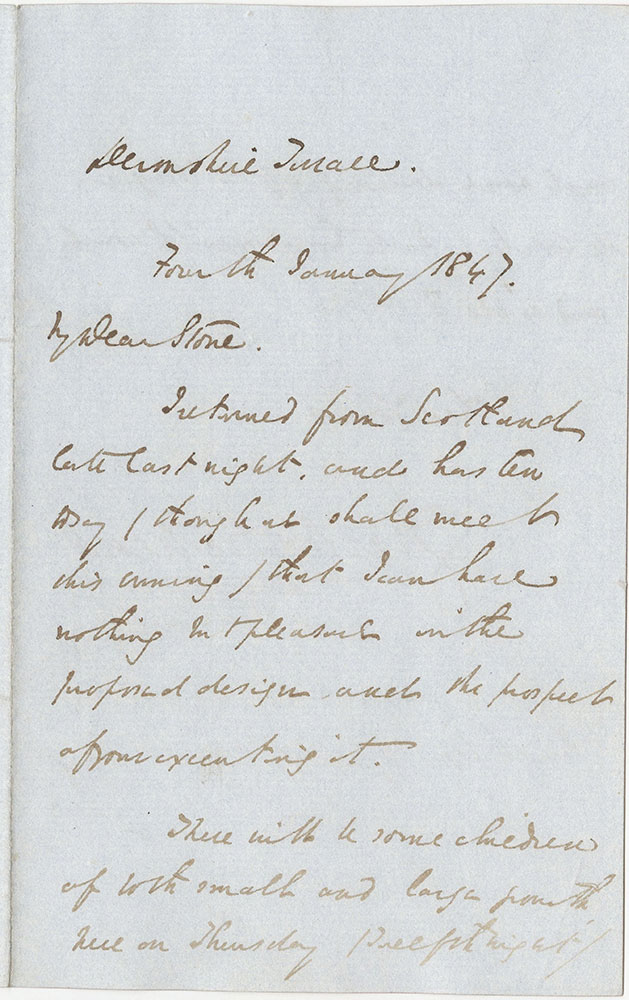 Devonshire Terrace.
Fourth January 1847.
My Dear Stone.
I returned from Scotland
late last night, and hasten
to say / though we shall meet
this evening / that I can have
nothing but pleasure in the
proposed design and the prospect
of your executing it.
There will be some children
of both small and large growth,
here on Thursday / Twelfth night /